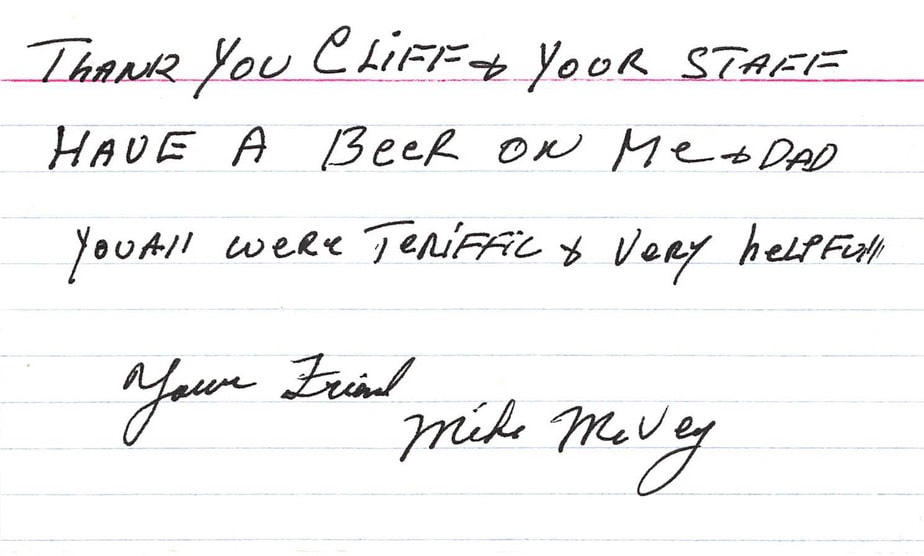 THANK YOU CLIFF & YOUR STAFF
HAVE A BEER ON ME & DAD
YOU All were TeRIFFIC & Very helpFull
Your Friend
Mike McVey